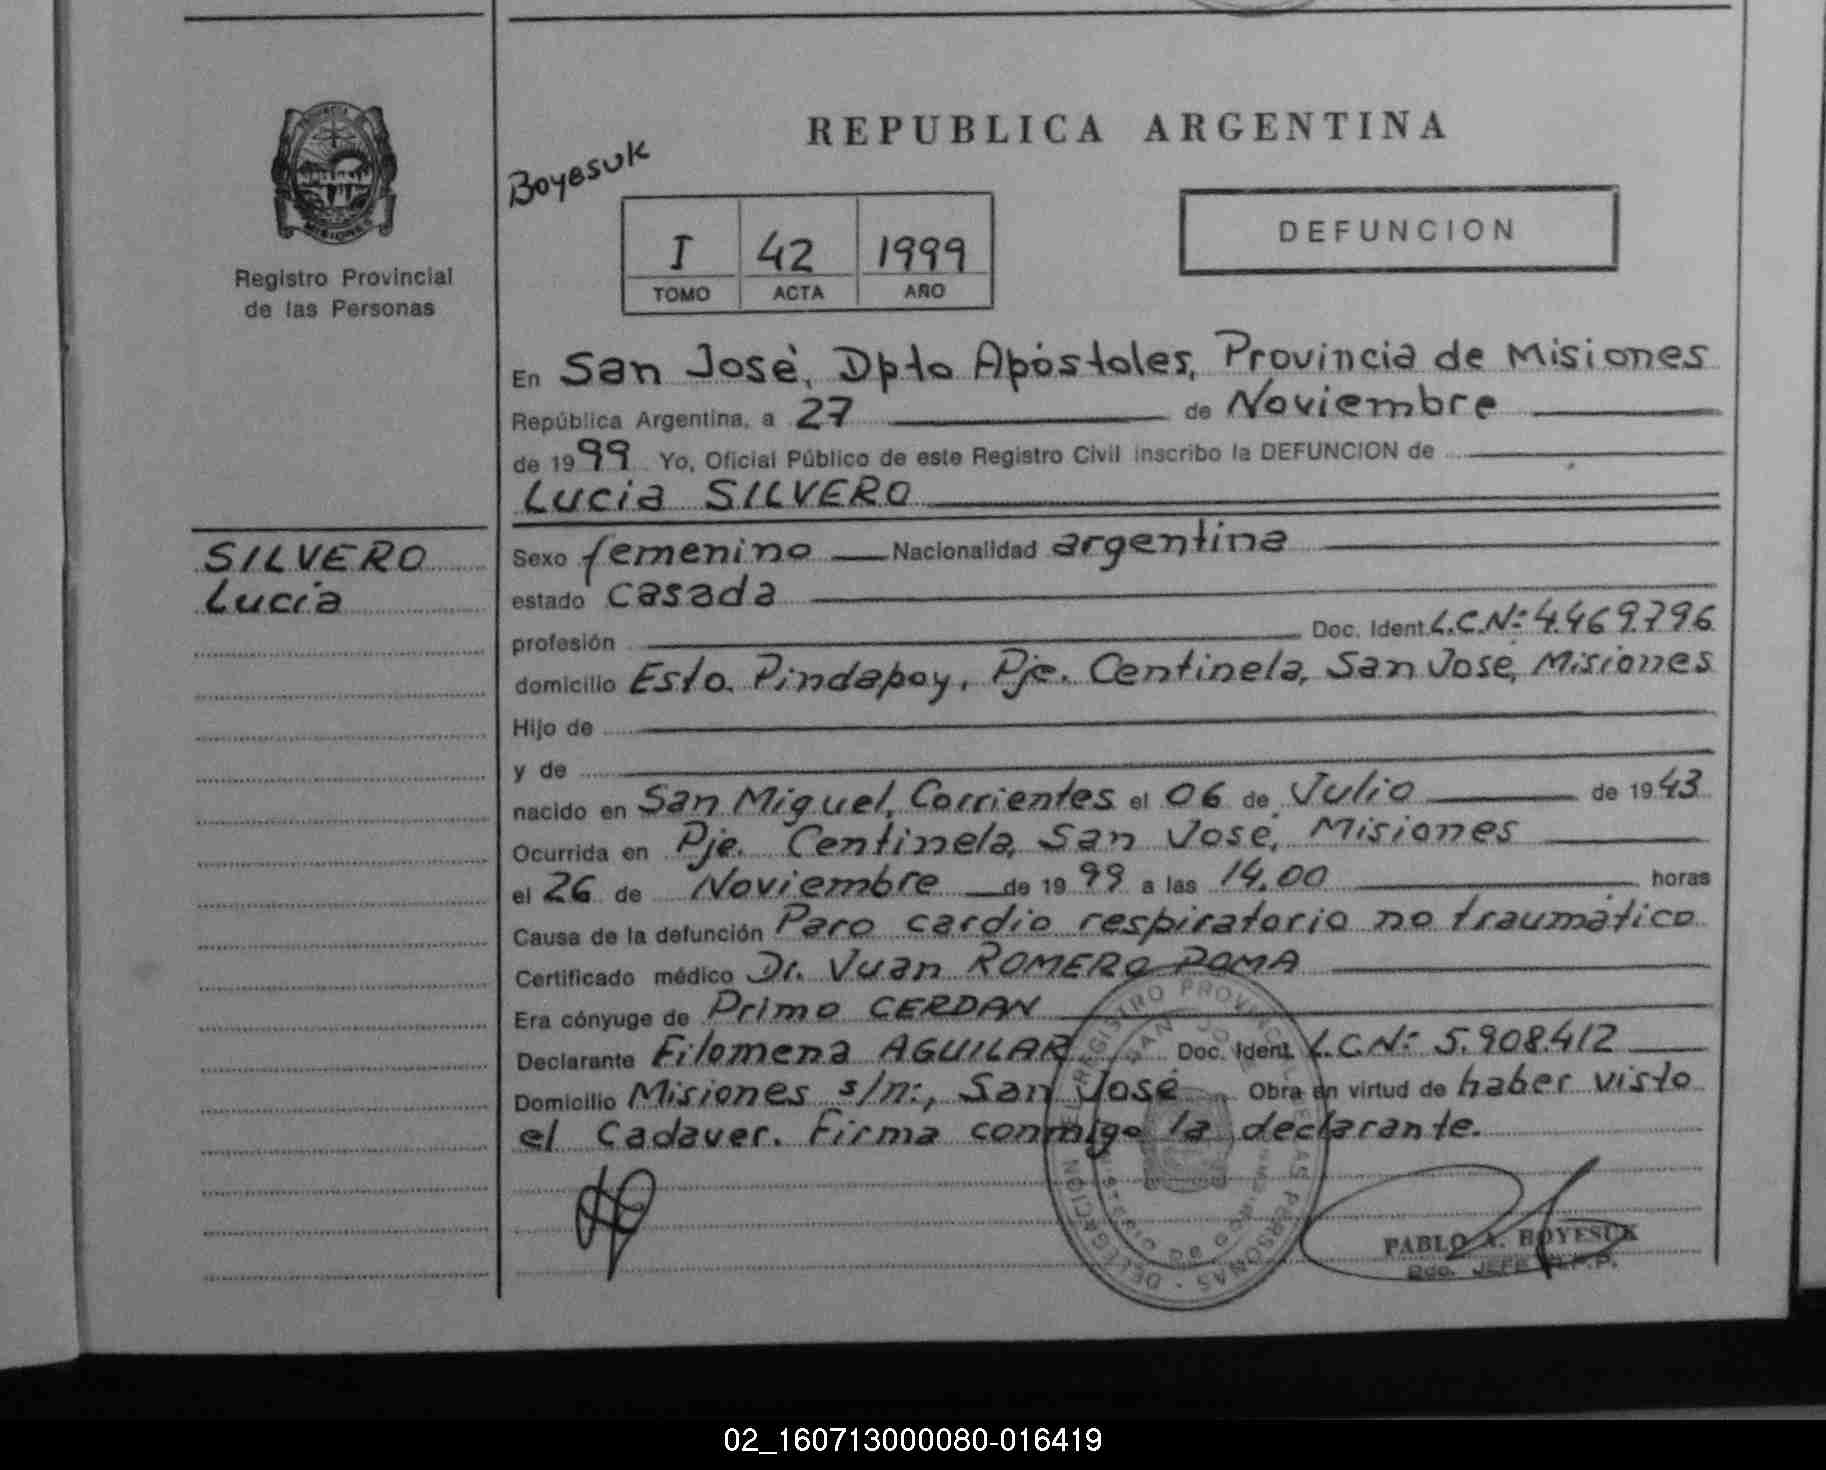 REPUBLICA ARGENTINA
Boyesuk
MISIONES
Registro Provincial
de las Personas
I 42 1999
TOMO ACTA AÑO
DEFUNCION
En San José, Dpto Apóstoles, Provincia de Misiones
República Argentina, a 27 de Noviembre
de 1999 Yo, Oficial Público de este Registro Civil inscribo la DEFUNCION de
Lucia SILVERO
SILVERO
Lucia
Sexo femenino Nacionalidad argentina
estado casada
profesión Doc. Ident. L.C.Nº: 4.469.796
domicilio Esto. Pindapoy, Pje. Centinela, San José, Misiones
Hijo de
y de
nacido en San Miguel, Corrientes el 06 de Julio de 1943
Ocurrida en Pje. Centinela, San José, Misiones
el 26 de Noviembre de 1999 a las 14,00 horas
Causa de la defunción Paro cardio respiratorio no traumático
Certificado médico Dr. Juan ROMERO POMA
Era cónyuge de Primo CERDAN
Declarante Filomena AGUILAR Doc. Ident. L.C.Nº: 5.908.412
Domicilio Misiones s/n:, San José Obra en virtud de haber visto
el Cadaver. Firma conmigo la declarante.
REGISTRO PROVINCIAL DE LAS PERSONAS - DELEGACION
SAN JOSE
PABLO A. BOYESUK
JEFE R.P.P.
02_160713000080-016419